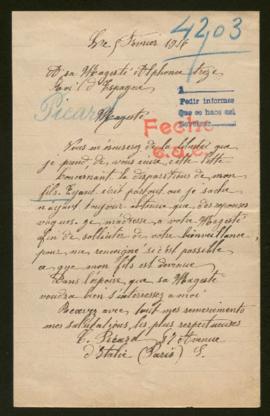 4203
Le 5 Fevrier 191
A sa Magesté Alphonse treze
Roi d'Espagne
Pedir informes
Que se hace así
Picard
Magesté
Fecho
Vous m'excuserez de la liberté que
je prend de vous ecrire cette lettre
concernant la disparition de mon
fils. Ayant écrit partout ou je sache
n'ayant toujour obtenue que des reponses
vagues. je m'adresse a votre Magesté
afin de solliciter de votre bienveillance
pour me renseigné si c'est possible
ce que mon fils est devenue
Dans l'espoir que sa Magesté
voudra bien s'interresser a moi
Recevez avec tout mes remerciments
mes salutations les plus respectueuses
Picard 87 Avenue
d'Italie (Paris)